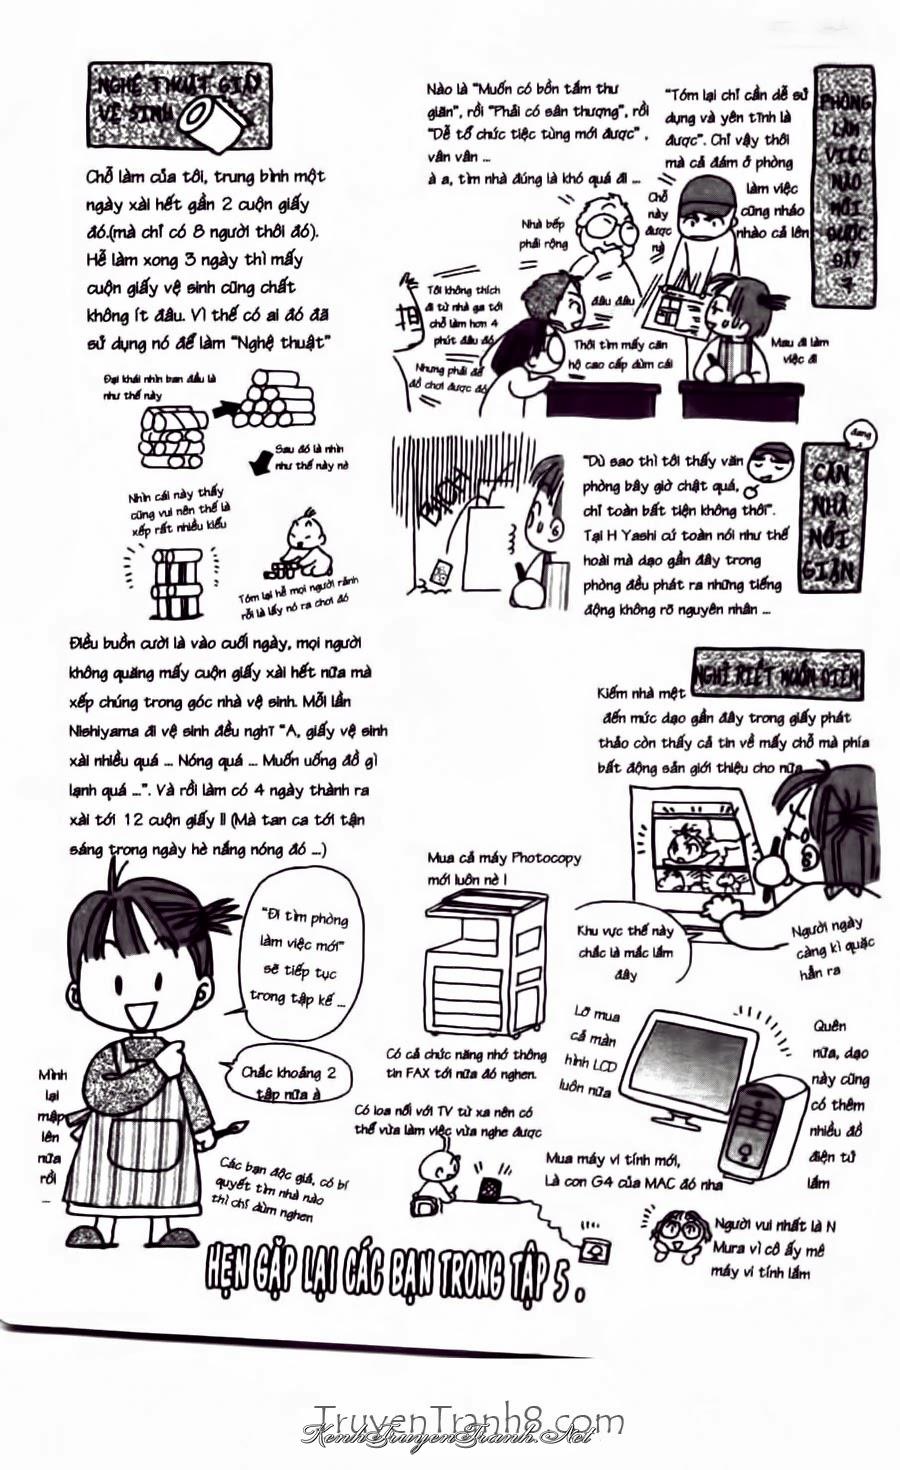 NGHỆ THUẬT GIẤY
VỆ SINH
Chỗ làm của tôi, trung bình một
ngày xài hết gần 2 cuộn giấy
đó.(mà chỉ có 8 người thôi đó).
Hễ làm xong 3 ngày thì mấy
cuộn giấy vệ sinh cũng chất
không ít đâu. Vì thế có ai đó đã
sử dụng nó để làm "Nghệ thuật"
Đại khái nhìn ban đầu là
như thế này
Sau đó là nhìn
như thế này nè
Nhìn cái này thấy
cũng vui nên thế là
xếp rất nhiều kiểu
Tóm lại hễ mọi người rảnh
rỗi là lấy nó ra chơi đó
Điều buồn cười là vào cuối ngày, mọi người
không quăng mấy cuộn giấy xài hết nữa mà
xếp chúng trong góc nhà vệ sinh. Mỗi lần
Nishiyama đi vệ sinh đều nghĩ "A, giấy vệ sinh
xài nhiều quá ... Nóng quá ... Muốn uống đồ gì
lạnh quá ...". Và rồi làm có 4 ngày thành ra
xài tới 12 cuộn giấy !! (Mà tan ca tới tận
sáng trong ngày hè nắng nóng đó ...)
"Đi tìm phòng
làm việc mới"
sẽ tiếp tục
trong tập kế ...
Chắc khoảng 2
tập nữa à
Mình
lại
mập
lên
nữa
rồi
...
Các bạn độc giả, có bí
quyết tìm nhà nào
thì chỉ dùm nghen
PHÒNG
LÀM
VIỆC
NÀO
MỚI
ĐƯỢC
ĐÂY
?
"Tóm lại chỉ cần dễ sử
dụng và yên tĩnh là
được". Chỉ vậy thôi
mà cả đám ở phòng
làm việc
cũng nháo
nhào cả lên
Nào là "Muốn có bồn tắm thư
giãn", rồi "Phải có sân thượng", rồi
"Dễ tổ chức tiệc tùng mới được" ,
vân vân ...
à a, tìm nhà đúng là khó quá đi ...
Chỗ
này
được
nè
Nhà bếp
phải rộng
đâu đâu
Tôi không thích
đi từ nhà ga tới
chỗ làm hơn 4
phút đâu đó
Nhưng phải để
đồ chơi được đó
Thôi tìm mấy căn
hộ cao cấp dùm cái
Mau đi làm
việc đi
đang
CĂN
NHÀ
NỔI
GIẬN
"Dù sao thì tôi thấy văn
phòng bây giờ chật quá,
chỉ toàn bất tiện không thôi".
Tại H Yashi cứ toàn nói như thế
hoài mà dạo gần đây trong
phòng đều phát ra những tiếng
động không rõ nguyên nhân ...
NGHĨ RIẾT MUỐN ĐIÊN
Kiếm nhà mệt
đến mức dạo gần đây trong giấy phát
thảo còn thấy cả tin về mấy chỗ mà phía
bất động sản giới thiệu cho nữa
Khu vực thế này
chắc là mắc lắm
đây
Người ngày
càng kì quặc
hẳn ra
Mua cả máy Photocopy
mới luôn nè !
Có cả chức năng nhớ thông
tin FAX tới nữa đó nghen.
Lỡ mua
cả màn
hình LCD
luôn nữa
Quên
nữa, dạo
này cũng
có thêm
nhiều đồ
điện tử
lắm
Có loa nối với TV từ xa nên có
thể vừa làm việc vừa nghe được
Mua máy vi tính mới,
Là con G4 của MAC đó nha
Người vui nhất là N
Mura vì cô ấy mê
máy vi tính lắm
HẸN GẶP LẠI CÁC BẠN TRONG TẬP 5 .
TruyenTranh8.com
KenhTruyenTranh.Net